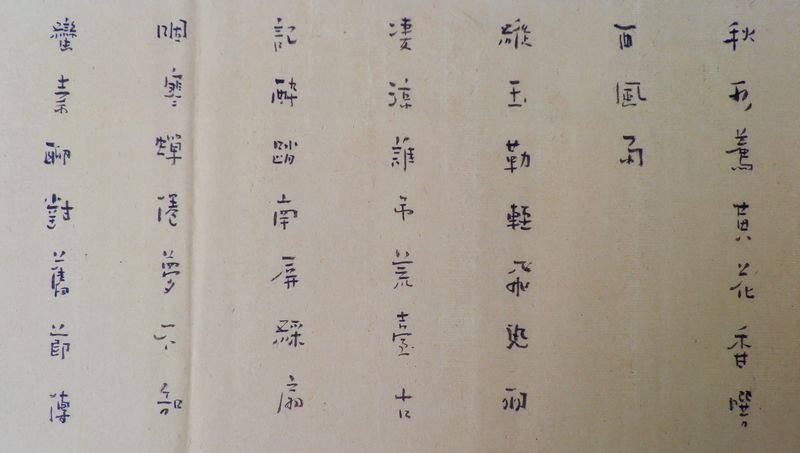 秋水薦黃花香噀
西風雨
縱玉勒輕飛迅羽
凄涼誰弔荒臺古
記醉踏南屏綵扇
咽寒蟬倦夢不知
蠻素聊對舊節傳